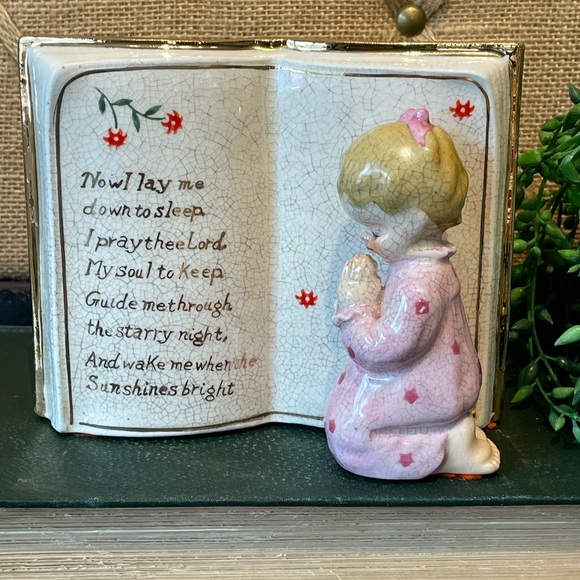 Now I lay me
down to sleep
I pray thee Lord
My soul to keep
Guide me through
the starry night,
And wake me when the
Sun shines bright